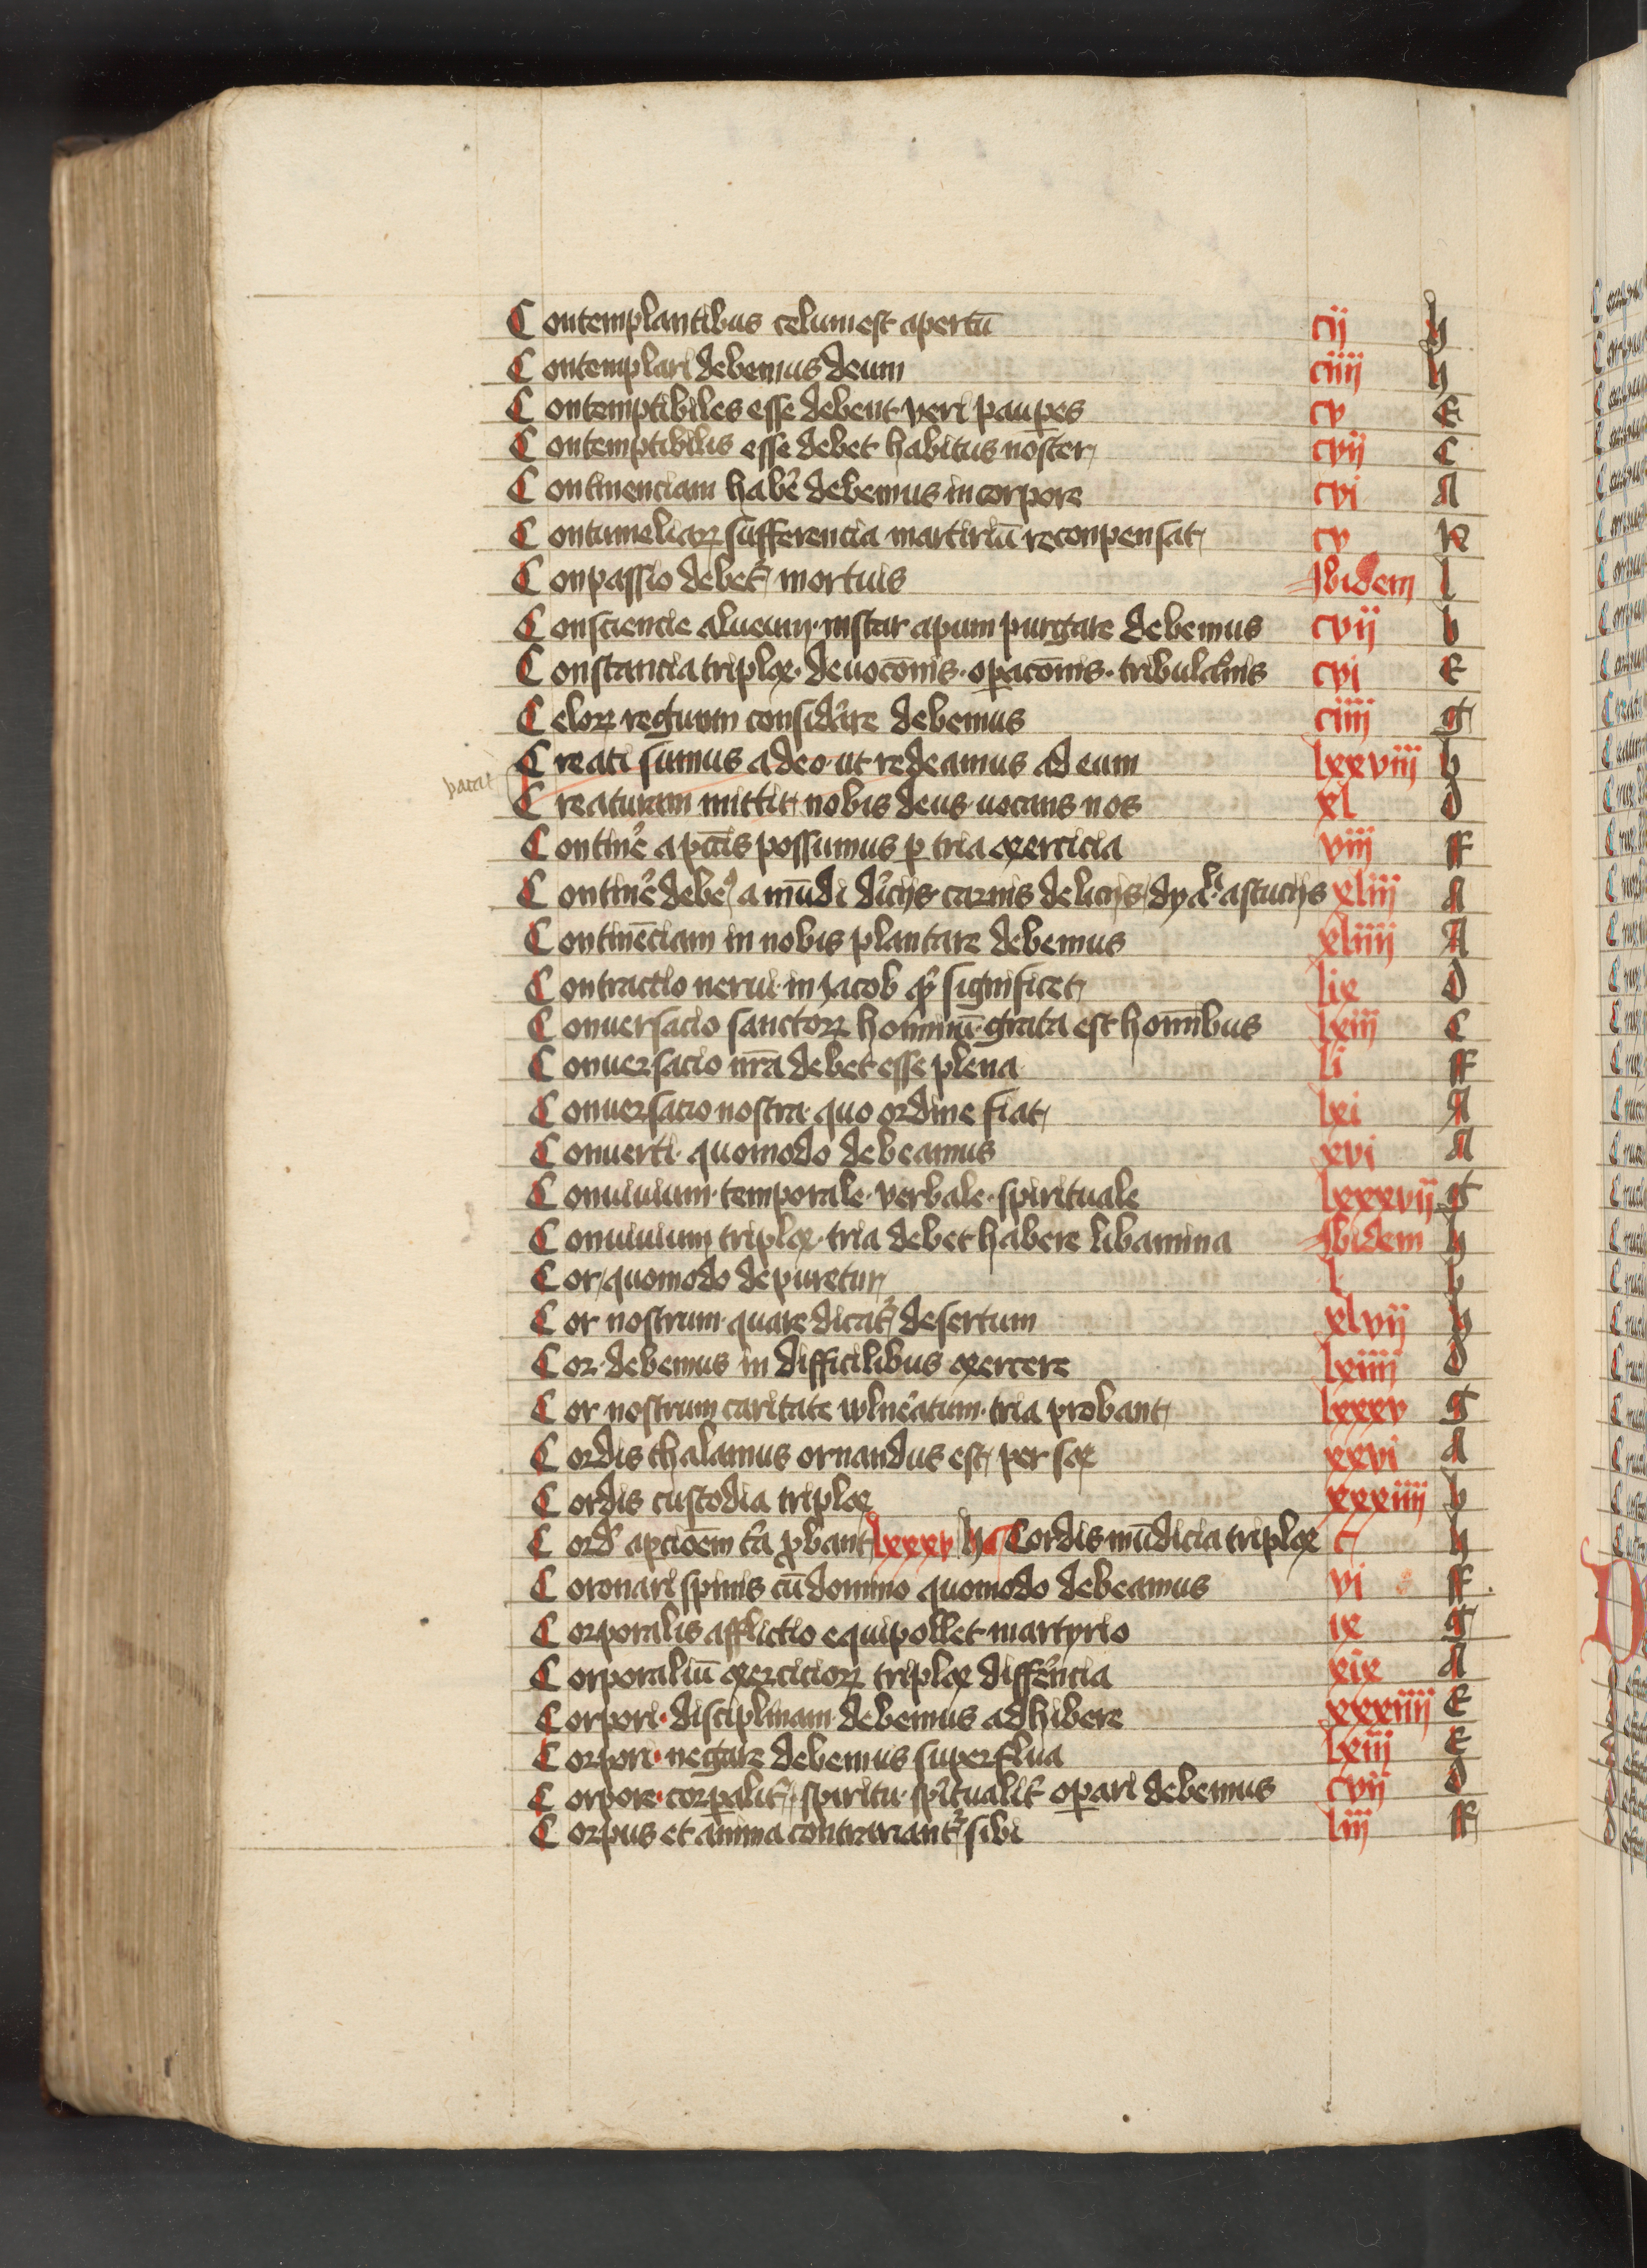 Contemplantibus celum est apertū cij h
Contemplari debemus deum ciiij h
Contemptibiles esse debent veri paupes cv E
Contemptibilis esse debet habitus noster cvij C
Continenciam habe᷑ debemus in corpore cvi A
Contumeliaꝝ sufferencia martiriū reconpensat cv K
Conpassio debet᷑ mortuis Ibidem l
Consciencie alueum instar apum purgare debemus cvij b
Constancia triplex deuocōnis opacōnis tribulacōnis cvi E
Celoꝝ regnum considare debemus ciiij g
Creati sumus a deo ut redeamus ad eum lxxviij h
vacat
Creaturam mittit nobis deus uocans nos xl D
Contine᷑ a pctīs possumus ꝑ tria exercicia viij ff
Contine᷑ debe a mūdi diuicijs carnis delicijs dyali astucijs xliij A
Continēciam in nobis plantare debemus xliiij A
Contractio nerui in Jacob qd significet lix D
Conuersacio sanctoꝝ hominū grata est hominibus lxiij C
Conuersacio nrā debet esse plena li ff
Conuersacio nostra quo ordine fiat lxi A
Conuerti quomodo debeamus xvi A
Conuiuium temporale verbale spirituale lxxxvij g
Conuiuium triplex tria debet habere libamina Ibidem h
Cor quomodo depuretur l b
Cor nostrum quare dicat᷑ desertum xlvij h
Cor debemus in difficilibus exercere lxiiij D
Cor nostrum caritate wlneatum tria probant lxxxv g
Cordis thalamus ornandus est per sex xxvi A
Cordis custodia triplex xxxiiij b
Cord apcioēm tia ꝓbant lxxxv h Cordis mūdicia triplex c h
Coronari spinis cū domino quomodo debeamus vi ff
Corporalis afflictio equipollet martyrio ix g
Corporaliū exercicioꝝ triplex diffencia xix A
Corpori disciplinam debemus adhibere xxxiiij E
Corpori negare debemus superflua lxiij E
Corpore corpalit᷑ spiritu spiritualit᷑ opari debemus cvij D
Corpus et anima contrariant᷑ sibi liij ff